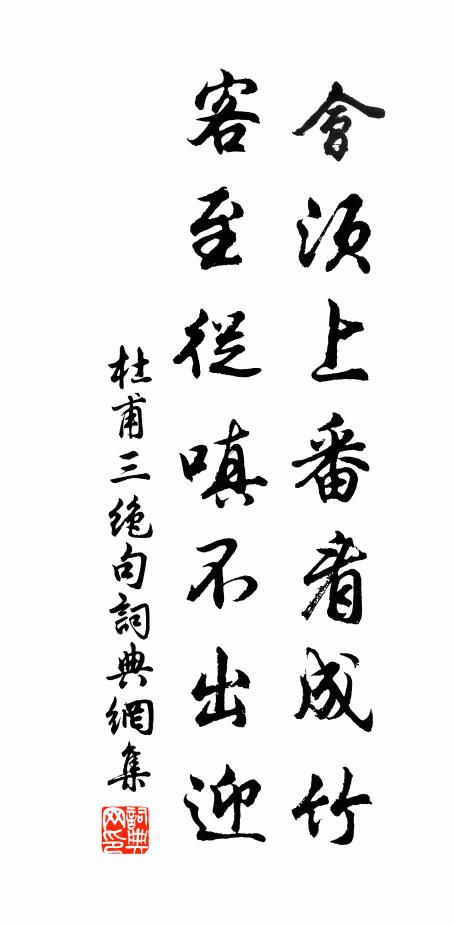 會須上番看成竹
客至從嗔不出迎
杜甫三絶句詞典網集
詞典网印